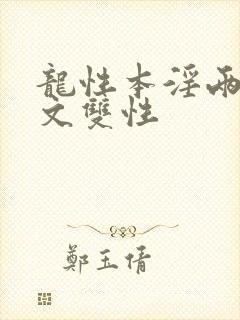 龍性本淫兩
文雙性
鄭玉倩